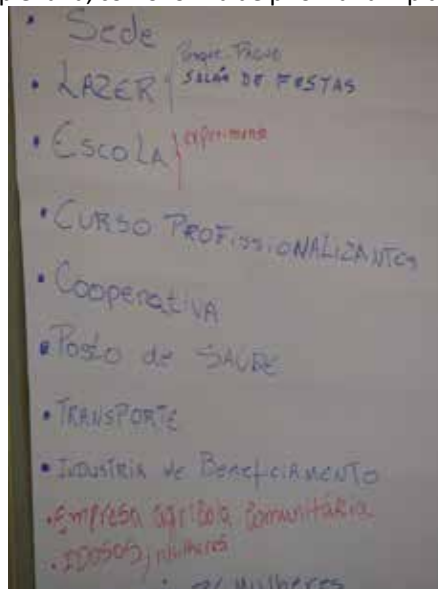 • Sede
• LAZER { SALÃO DE FESTAS
• EscoLA }
• CURSO PROFissiONALIZANTES
• CooperatiVA
• Posto de SAUDE
• TRANSPORTE
• INDUSTRIA de BeneficiAMENTO
• Empresa agrícola Comunitária
• IDOSOS, mulheres
Mulheres